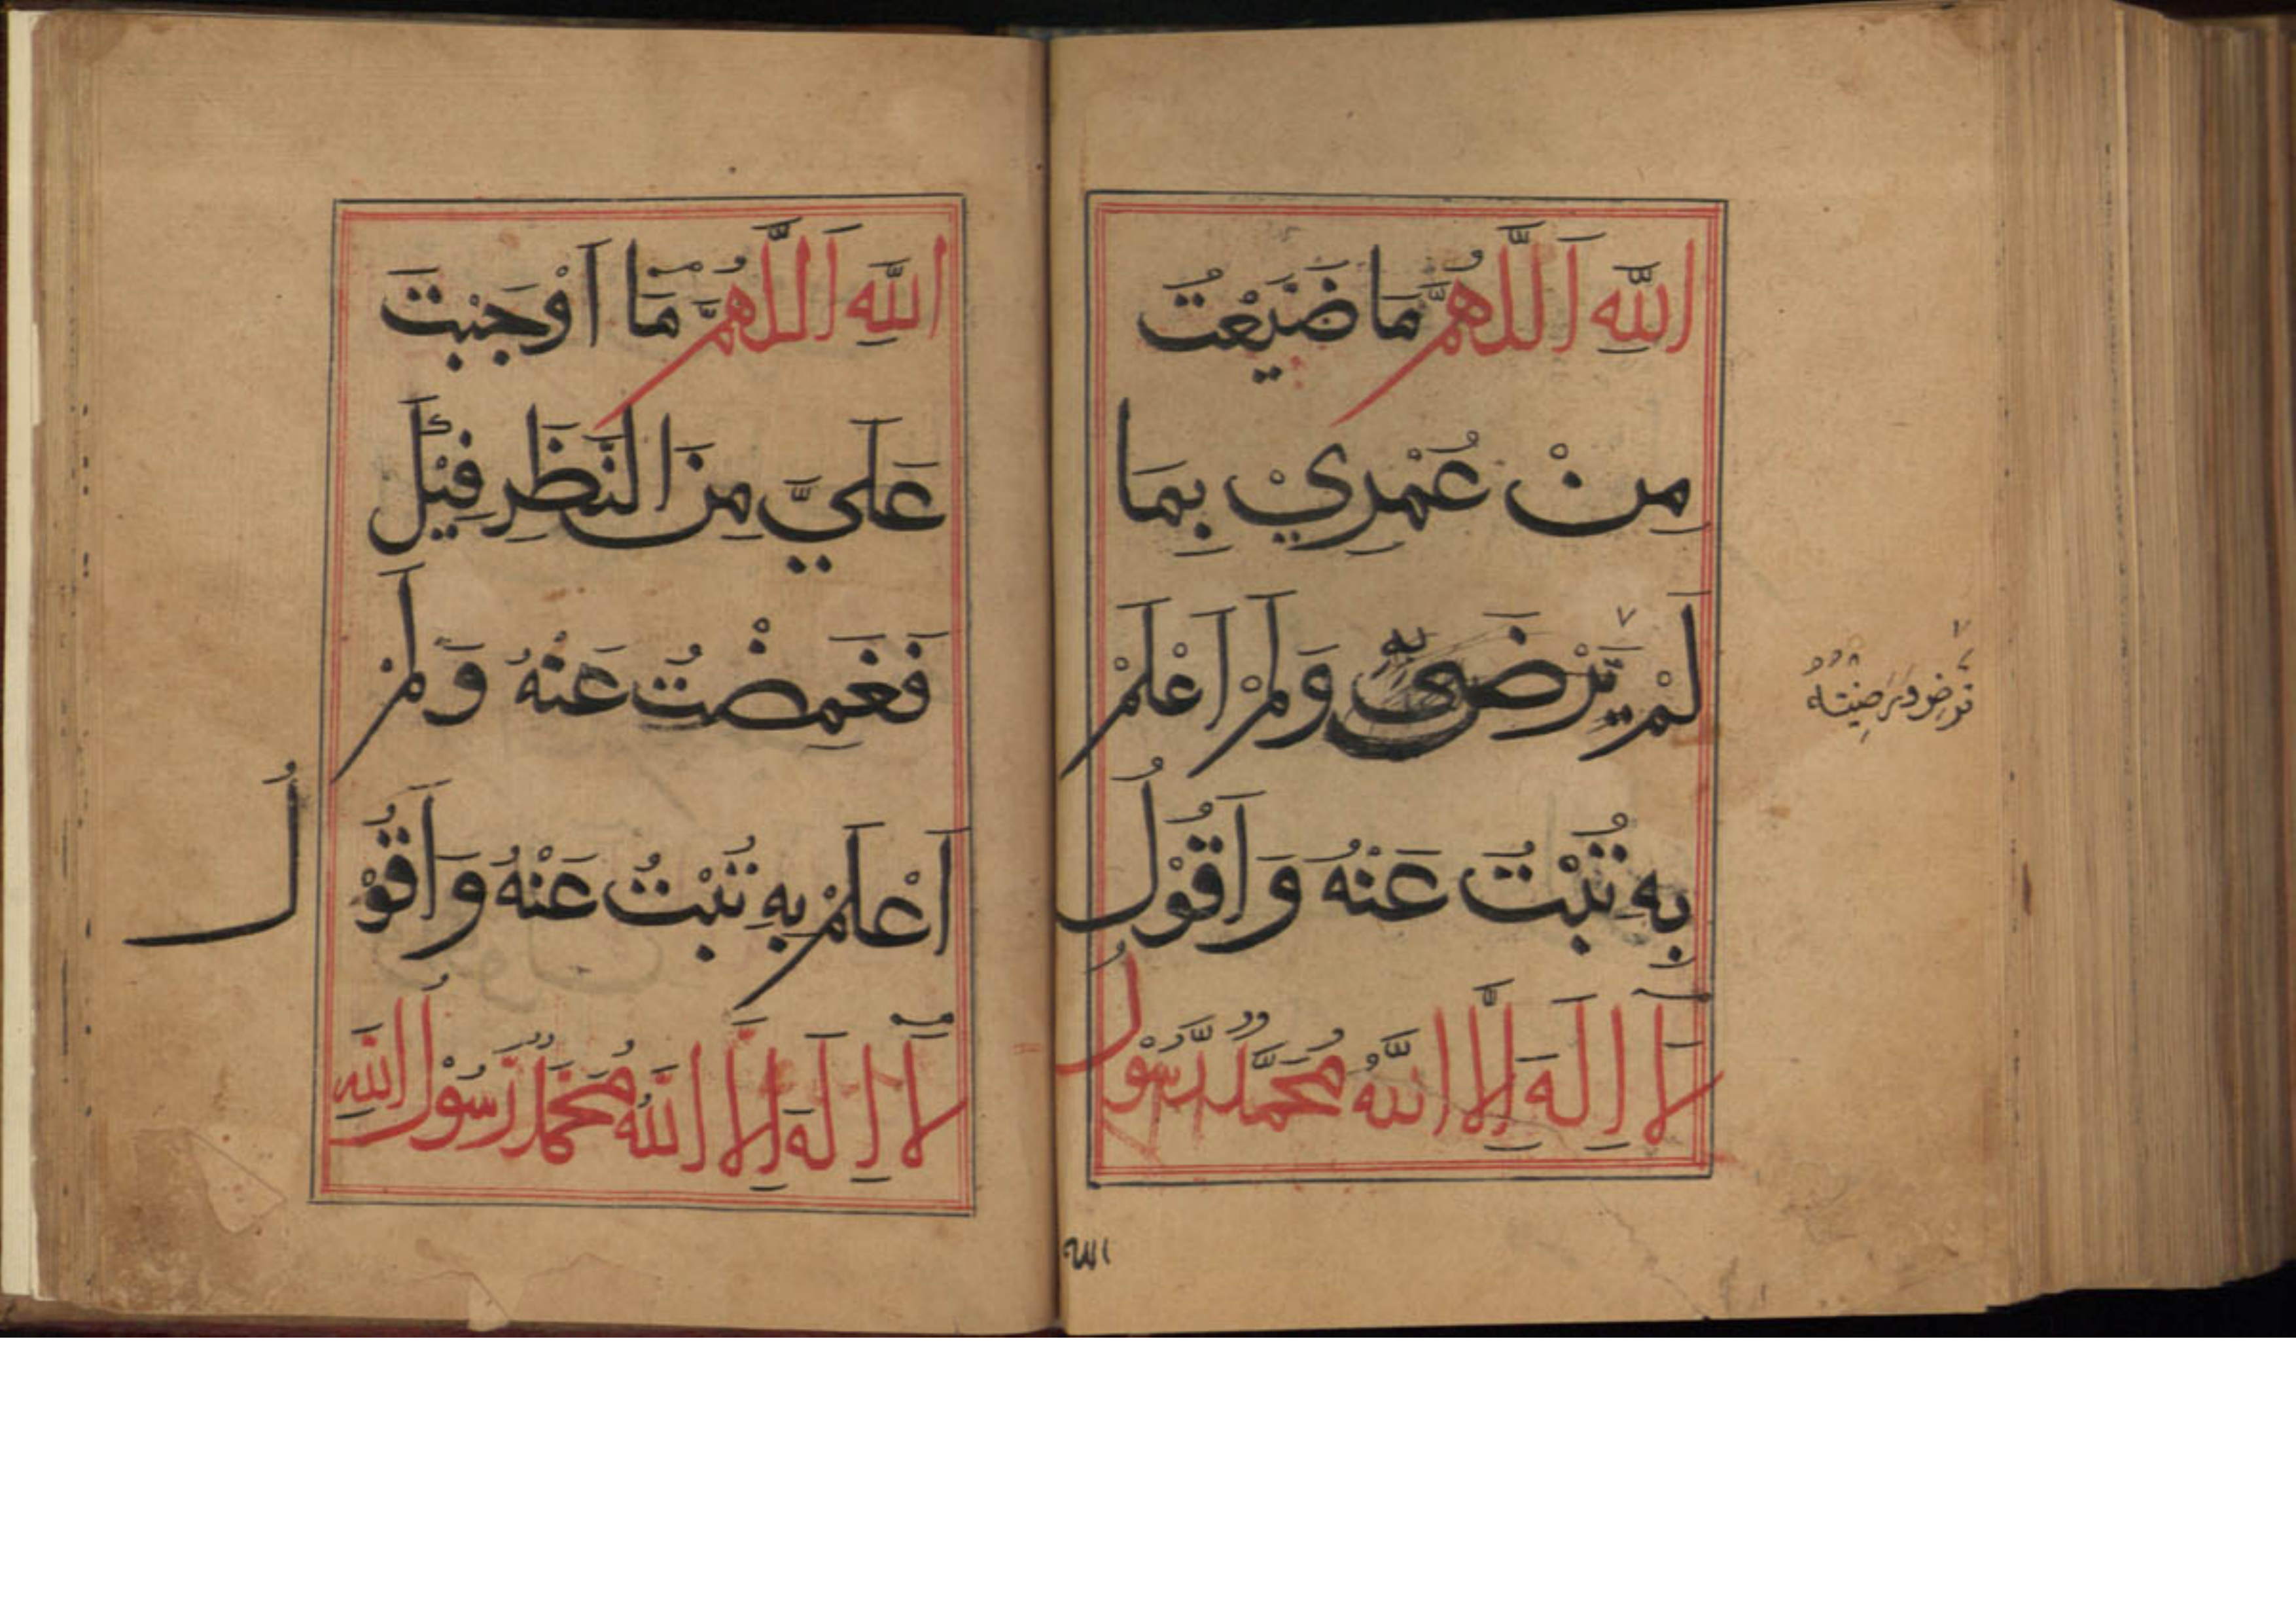 اللهِ اَللّٰهُمَّ مَا ضَيَّعْتُ
مِنْ عُمْرِيْ بِمَا
لَمْ يَرْضَى بِهٖ وَلَمْ اَعْلَمْ
بِهٖ تُبْتُ عَنْهُ وَاَقُوْلُ
لَآ اِلٰهَ اِلَّا اللّٰهُ مُحَمَّدٌ رَّسُوْلُ
الله
اللهِ اَللّٰهُمَّ مَا اَوْجَبْتَ
عَلَيَّ مِنَ النَّظَرِ فِيْكَ
فَغَمِضْتُ عَنْهُ وَلَمْ
اَعْلَمْ بِهٖ تُبْتُ عَنْهُ وَاَقُوْلُ
لَآ اِلٰهَ اِلَّا اللّٰهُ مُحَمَّدٌ رَّسُوْلُ اللهِ